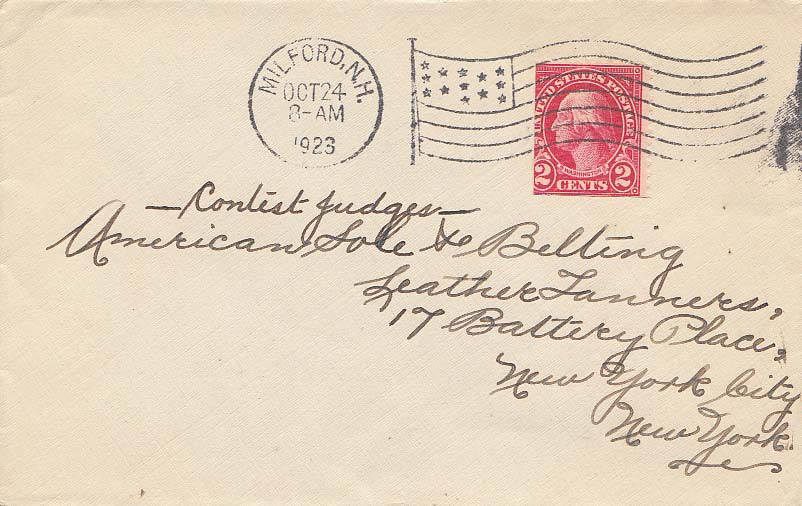 MILFORD, N.H.
OCT 24
8-AM
1923
UNITED STATES POSTAGE
WASHINGTON
2 CENTS 2
— Contest Judges —
American Sole & Belting
Leather Tanners,
17 Battery Place,
New York City
New York.